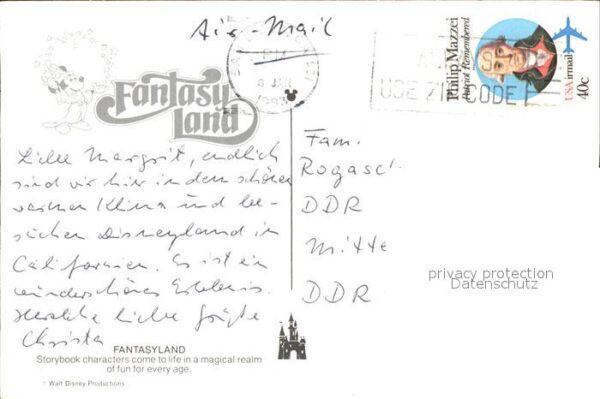 Air-Mail
PM
1983
USE ZIP CODE
Philip Mazzei
Patriot Remembered
USAirmail
40c
Fantasy
Land
Liebe Margrit, endlich
sind wir hier in den schönen
warmen Klima und be-
suchen Disneyland in
Californien. Es ist ein
wunderschönes Erlebnis.
Herzliche liebe Grüße
Christa
Fam.
Rogasc
DDR
Mitte
DDR
privacy protection
Datenschutz
FANTASYLAND
Storybook characters come to life in a magical realm
of fun for every age.
Walt Disney Productions